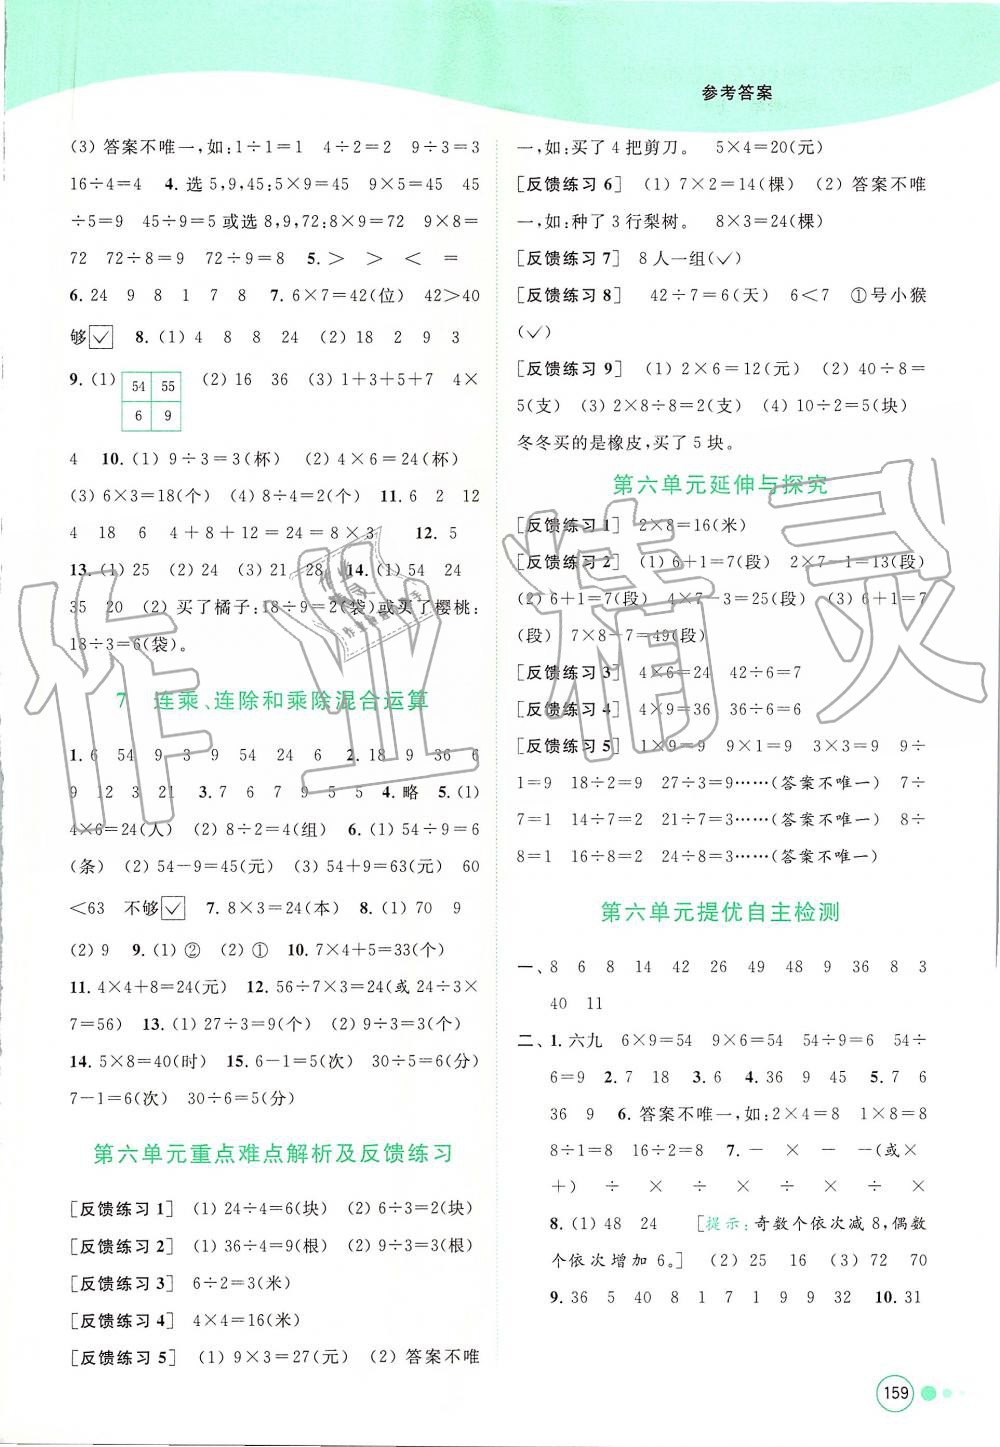 参考答案
(3) 答案不唯一,如:1÷1=1 4÷2=2 9÷3=3
16÷4=4 4. 选 5,9,45:5×9=45 9×5=45 45
÷5=9 45÷9=5 或选 8,9,72:8×9=72 9×8=
72 72÷8=9 72÷9=8 5. > > < =
6. 24 9 8 1 7 8 7. 6×7=42(位) 42>40
够 ✓ 8. (1) 4 8 8 24 (2) 18 2 9 3
9. (1) 54 55 (2) 16 36 (3) 1+3+5+7 4×
6 9
4 10. (1) 9÷3=3(杯) (2) 4×6=24(杯)
(3) 6×3=18(个) (4) 8÷4=2(杯) 11. 6 2 12
4 18 6 4+8+12=24=8×3 12. 5
13. (1) 25 (2) 24 (3) 21 28 14. (1) 54 24
35 20 (2) 买了橘子:18÷9=2(袋)或买了樱桃:
18÷3=6(袋)。
7 连乘、连除和乘除混合运算
1. 6 54 9 3 9 54 24 6 2. 18 9 36 6
9 12 3 21 3. 7 6 7 9 5 5 4. 略 5. (1)
4×6=24(人) (2) 8÷2=4(组) 6. (1) 54÷9=6
(条) (2) 54-9=45(元) (3) 54+9=63(元) 60
<63 不够 ✓ 7. 8×3=24(本) 8. (1) 70 9
(2) 9 9. (1) ② (2) ① 10. 7×4+5=33(个)
11. 4×4+8=24(元) 12. 56÷7×3=24(或 24÷3×
7=56) 13. (1) 27÷3=9(个) (2) 9÷3=3(个)
14. 5×8=40(时) 15. 6-1=5(次) 30÷5=6(分)
7-1=6(次) 30÷6=5(分)
第六单元重点难点解析及反馈练习
[反馈练习 1] (1) 24÷4=6(块) (2) 6÷3=2(块)
[反馈练习 2] (1) 36÷4=9(根) (2) 9÷3=3(根)
[反馈练习 3] 6÷2=3(米)
[反馈练习 4] 4×4=16(米)
[反馈练习 5] (1) 9×3=27(元) (2) 答案不唯
一,如:买了 4 把剪刀。 5×4=20(元)
[反馈练习 6] (1) 7×2=14(棵) (2) 答案不唯
一,如:种了 3 行梨树。 8×3=24(棵)
[反馈练习 7] 8 人一组(✓)
[反馈练习 8] 42÷7=6(天) 6<7 ①号小猴
(✓)
[反馈练习 9] (1) 2×6=12(元) (2) 40÷8=
5(支) (3) 2×8÷8=2(支) (4) 10÷2=5(块)
冬冬买的是橡皮,买了 5 块。
第六单元延伸与探究
[反馈练习 1] 2×8=16(米)
[反馈练习 2] (1) 6+1=7(段) 2×7-1=13(段)
(2) 6+1=7(段) 4×7-3=25(段) (3) 6+1=7
(段) 7×8-7=49(段)
[反馈练习 3] 4×6=24 42÷6=7
[反馈练习 4] 4×9=36 36÷6=6
[反馈练习 5] 1×9=9 9×1=9 3×3=9 9÷
1=9 18÷2=9 27÷3=9……(答案不唯一) 7÷
7=1 14÷7=2 21÷7=3……(答案不唯一) 8÷
8=1 16÷8=2 24÷8=3……(答案不唯一)
第六单元提优自主检测
一、8 6 8 14 42 26 49 48 9 36 8 3
40 11
二、1. 六九 6×9=54 9×6=54 54÷9=6 54÷
6=9 2. 7 18 3. 6 4. 36 9 45 5. 7 6
36 9 6. 答案不唯一,如:2×4=8 1×8=8
8÷1=8 16÷2=8 7. - × - -(或×
+) ÷ × ÷ × × ÷ ×
8. (1) 48 24 [提示:奇数个依次减 8,偶数
个依次增加 6。] (2) 25 16 (3) 72 70
9. 36 5 40 8 1 7 1 9 9 32 10. 31
159
作业精灵